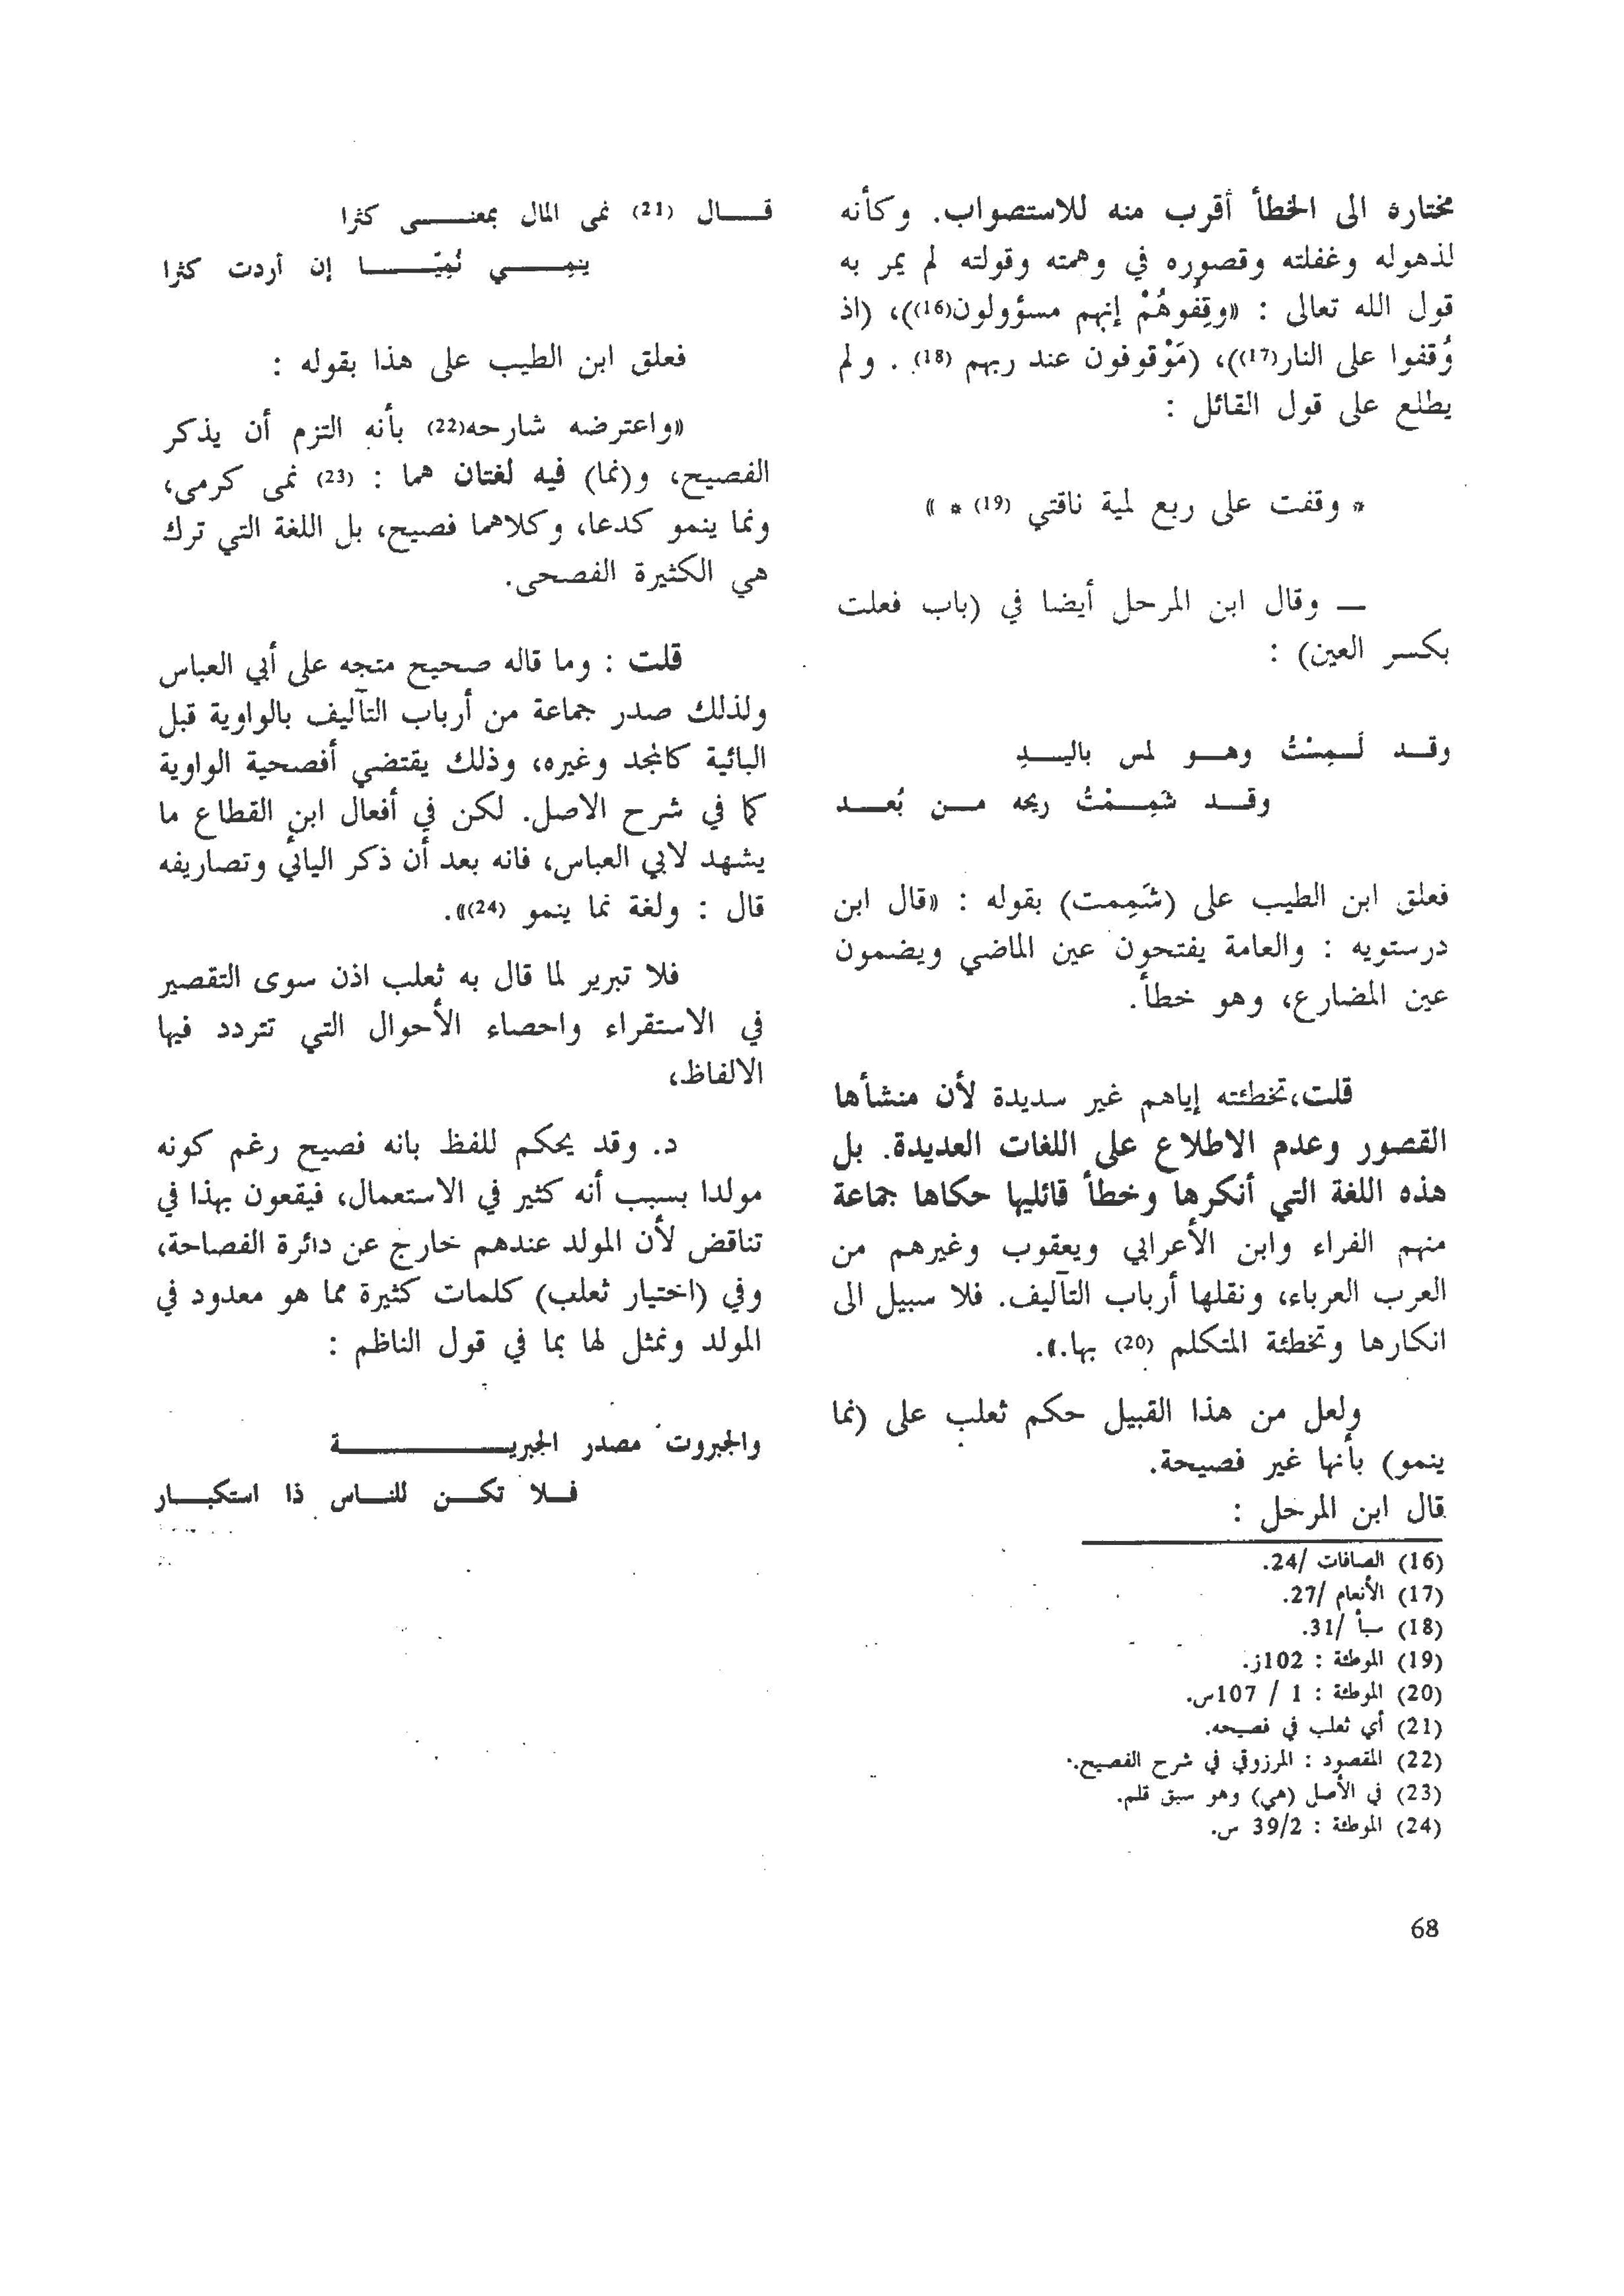 مختاره الى الخطأ أقرب منه للاستصواب. وكأنه
لذهوله وغفلته وقصوره في وهمته وقولته لم يمر به
قول الله تعالى : «وقِفُوهُمْ إنهم مسؤولون(16))، (اذ
وُقفوا على النار(17))، (مَوْقوفون عند ربهم (18). ولم
يطلع على قول القائل :
* وقفت على ربع لمية ناقتي (19) * »
— وقال ابن المرحل أيضا في (باب فعلت
بكسر العين) :
وقد لَمِسْتُ وهو لمس باليدِ
وقد شَمِمْتُ ريحه من بُعد
فعلق ابن الطيب على (شَمِمت) بقوله : «قال ابن
درستويه : والعامة يفتحون عين الماضي ويضمون
عين المضارع، وهو خطأ.
قلت،تخطئته إياهم غير سديدة لأن منشأها
القصور وعدم الاطلاع على اللغات العديدة. بل
هذه اللغة التي أنكرها وخطأ قائليها حكاها جماعة
منهم الفراء وابن الأعرابي ويعقوب وغيرهم من
العرب العرباء، ونقلها أرباب التآليف. فلا سبيل الى
انكارها وتخطئة المتكلم (20) بها.».
ولعل من هذا القبيل حكم ثعلب على (نما
ينمو) بأنها غير فصيحة.
قال ابن المرحل :
(16) الصافات /24.
(17) الأنعام /27.
(18) سبأ /31.
(19) الموطئة : 102ز.
(20) الموطئة : 1 / 107س.
(21) أي ثعلب في فصيحه.
(22) المقصود : المرزوقي في شرح الفصيح.
(23) في الأصل (هي) وهو سبق قلم.
(24) الموطئة : 39/2 س.
قال (21) نمى المال بمعنى كثرا
ينمِي نُمِيّا إن أردت كثرا
فعلق ابن الطيب على هذا بقوله :
«واعترضه شارحه(22) بأنه التزم أن يذكر
الفصيح، و(نما) فيه لغتان هما : (23) نمى كرمى،
ونما ينمو كدعا، وكلاهما فصيح، بل اللغة التي ترك
هي الكثيرة الفصحى.
قلت : وما قاله صحيح متجه على أبي العباس
ولذلك صدر جماعة من أرباب التآليف بالواوية قبل
اليائية كالمجد وغيره، وذلك يقتضي أفصحية الواوية
كما في شرح الاصل. لكن في أفعال ابن القطاع ما
يشهد لابي العباس، فانه بعد أن ذكر اليائي وتصاريفه
قال : ولغة نما ينمو (24)».
فلا تبرير لما قال به ثعلب اذن سوى التقصير
في الاستقراء واحصاء الأحوال التي تتردد فيها
الالفاظ،
د. وقد يحكم للفظ بانه فصيح رغم كونه
مولدا بسبب أنه كثير في الاستعمال، فيقعون بهذا في
تناقض لأن المولد عندهم خارج عن دائرة الفصاحة،
وفي (اختيار ثعلب) كلمات كثيرة مما هو معدود في
المولد ونمثل لها بما في قول الناظم :
والجبروت مصدر الجبرية
فلا تكن للناس ذا استكبار
68